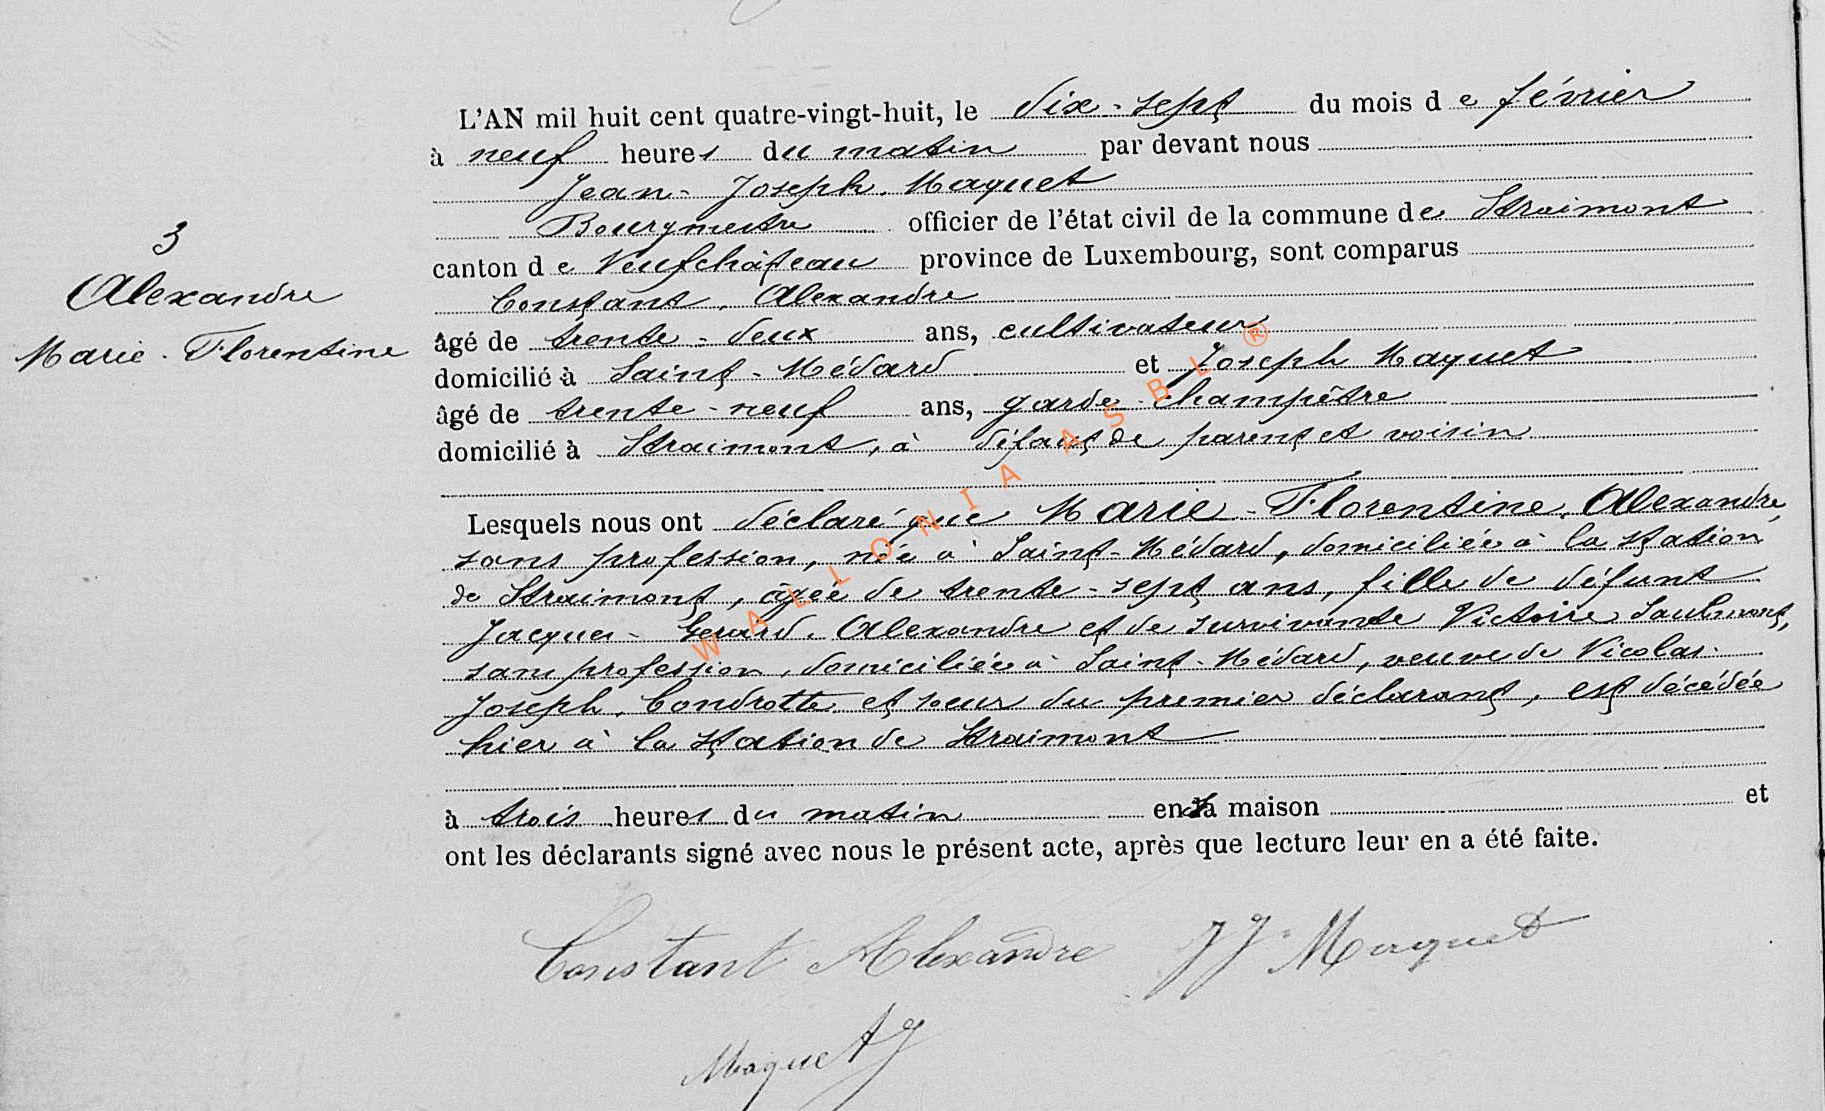 L'AN mil huit cent quatre-vingt-huit, le dix-sept du mois de février
à neuf heures du matin par devant nous
Jean-Joseph Maquet
Bourgmestre officier de l'état civil de la commune de Straimont
3
canton de Neufchâteau province de Luxembourg, sont comparus
Alexandre
Constant Alexandre
Marie-Florentine
âgé de trente-deux ans, cultivateur
domicilié à Saint-Médard et Joseph Maquet
âgé de trente-neuf ans, garde champêtre
domicilié à Straimont, à défaut de parent et voisin
Lesquels nous ont déclaré que Marie-Florentine Alexandre,
sans profession, née à Saint-Médard, domiciliée à la station
de Straimont, âgée de trente-sept ans, fille de défunt
Jacques-Gerard Alexandre et de survivante Victoire Saulmont,
sans profession, domiciliée à Saint-Médard, veuve de Nicolas-
Joseph Condrotte et soeur du premier déclarant, est décédée
hier à la station de Straimont
à trois heures du matin en sa maison et
ont les déclarants signé avec nous le présent acte, après que lecture leur en a été faite.
Constant Alexandre JJ Maquet
Maquet J
WALLONIA ASBL ®